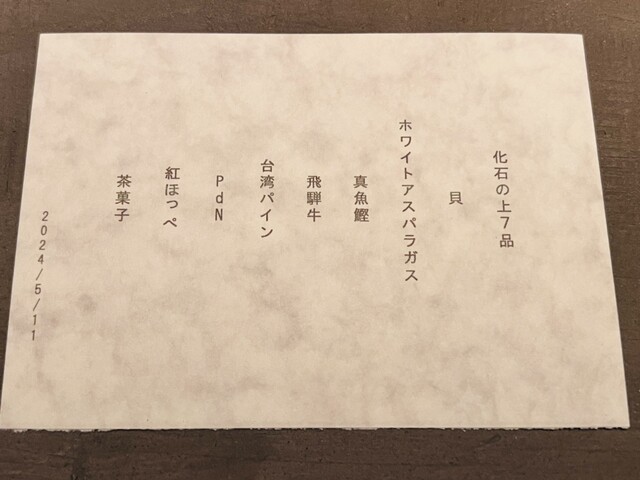 化石の上7品
貝
ホワイトアスパラガス
真魚鰹
飛騨牛
台湾パイン
PdN
紅ほっぺ
茶菓子
2024/5/11